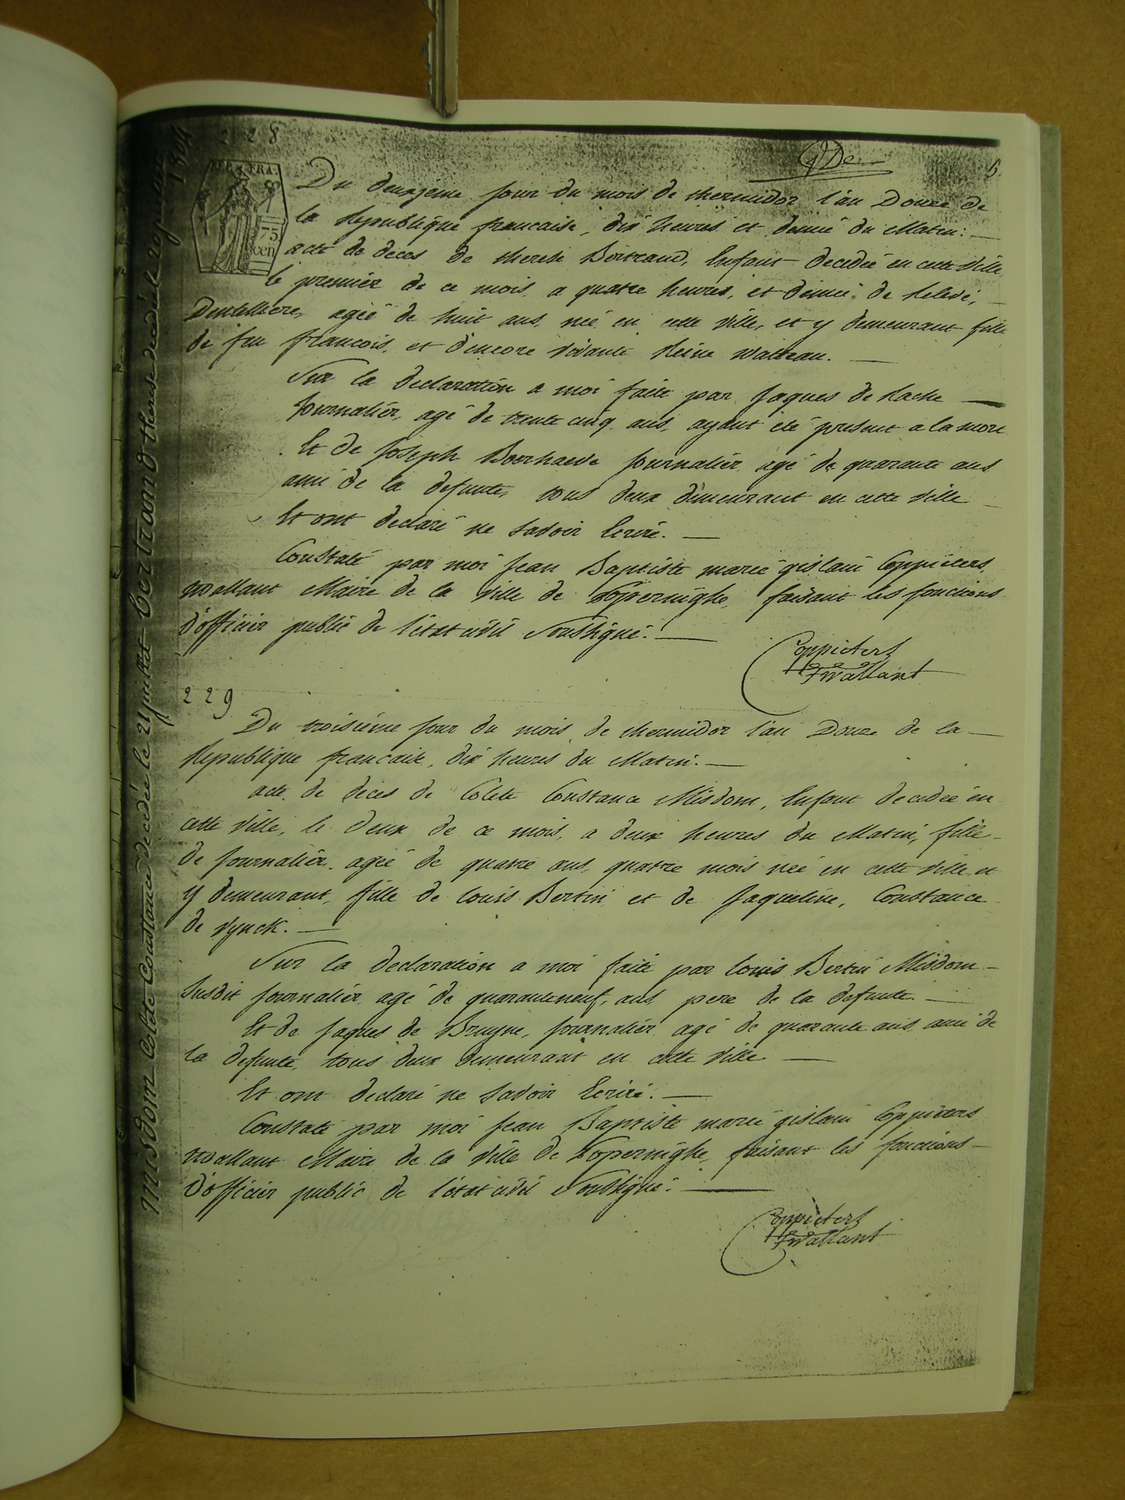 228
5
REP. FRA.
75
cen
Du deuxième jour du mois de thermidor l'an Douze de
la Republique francaise, dix heures et demie du Matin: —
acte de deces de therese Bertrand, Enfant decedée en cette Ville,
le premier de ce mois, a quatre heures, et demie de relevé, —
Dentelliere, agée de huit ans, née en cette Ville, et y demeurant fille
de feu francois, et d'encore vivante Reine Watteau. —
Sur la declaration a moi faite par Jaques de —
Journalier, agé de trente cinq ans, ayant été present a la mort
Et de Joseph Boerhaeve Journalier agé de quarante ans
ami de la defunte, tous deux demeurant en cette Ville
Et ont declaré ne savoir Ecrire. —
Constaté par moi Jean Baptiste marie gislain Coppieters
Wallant Maire de la Ville de Poperinghe, faisant les fonctions
d'officier public de l'etat civil soussigné. —
Coppieters
Wallant
229
Du troisième jour du mois de thermidor l'an Douze de la —
Republique francaise, dix heures du Matin. —
acte de déces de Colete Constance Misdom, Enfant decedée en
cette Ville, le deux de ce mois, a deux heures du Matin, fille
de Journalier, agée de quatre ans, quatre mois née en cette Ville et
y demeurant, fille de Louis Bertin et de Jaqueline, Constance
de Vynck. —
Sur la declaration a moi faite par Louis Bertin Misdom —
susdit Journalier, agé de quaranteneuf, ans pere de la defunte. —
Et de Jaques de Bruyne, Journalier agé de quarante ans ami de
la defunte, tous deux demeurant en cette Ville —
Et ont declaré ne savoir Ecrire. —
Constaté par moi Jean Baptiste marie gislain Coppieters
Wallant Maire de la Ville de Poperinghe, faisant les fonctions —
d'officier public de l'etat civil soussigné. —
Coppieters
Wallant
Misdom Colete Constance decedée le 21 juillet Bertrand therese decedée le 20 1804